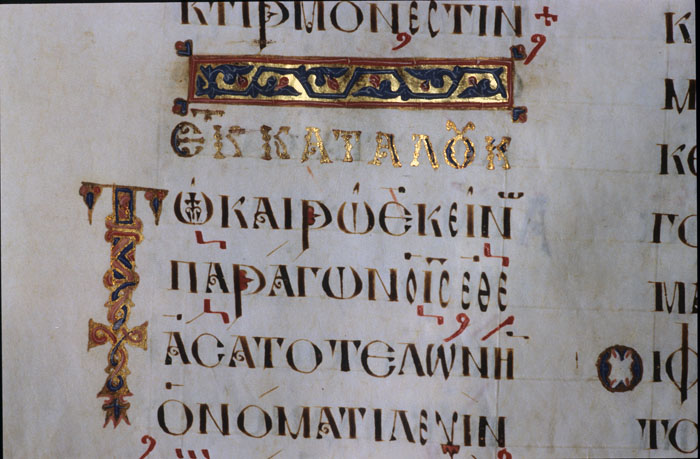 ΚΤΙΡΜΟΝΕϹΤΙΝ
ΕΚ ΚΑΤΑ ΛΟΥΚ
ΤΩ ΚΑΙΡΩ ΕΚΕΙΝ
ΠΑΡΑΓΩΝ Ο ΙϹ ΕΘΕ
ΑϹΑΤΟ ΤΕΛΩΝΗ
ΟΝΟΜΑΤΙ ΛΕΥΙΝ
Κ
Μ
ΚΕ
ΓΟ
ΜΑ
ΟΙΦ
ΤΟ